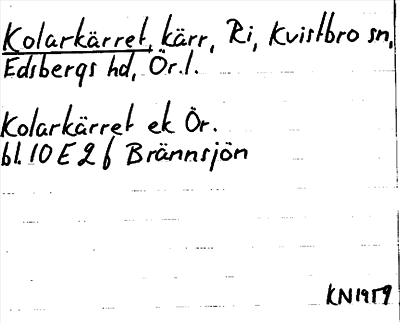 Kolarkärret, kärr, Ri, Kvistbro sn,
Edsbergs hd, Ör.l.
Kolarkärret ek Ör.
bl. 10 E 2 f Brännsjön
KN1959